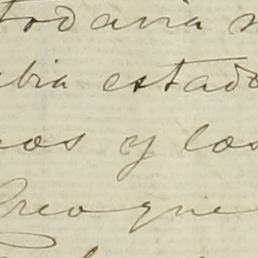 todavia
bia estado
os y los
Creo que